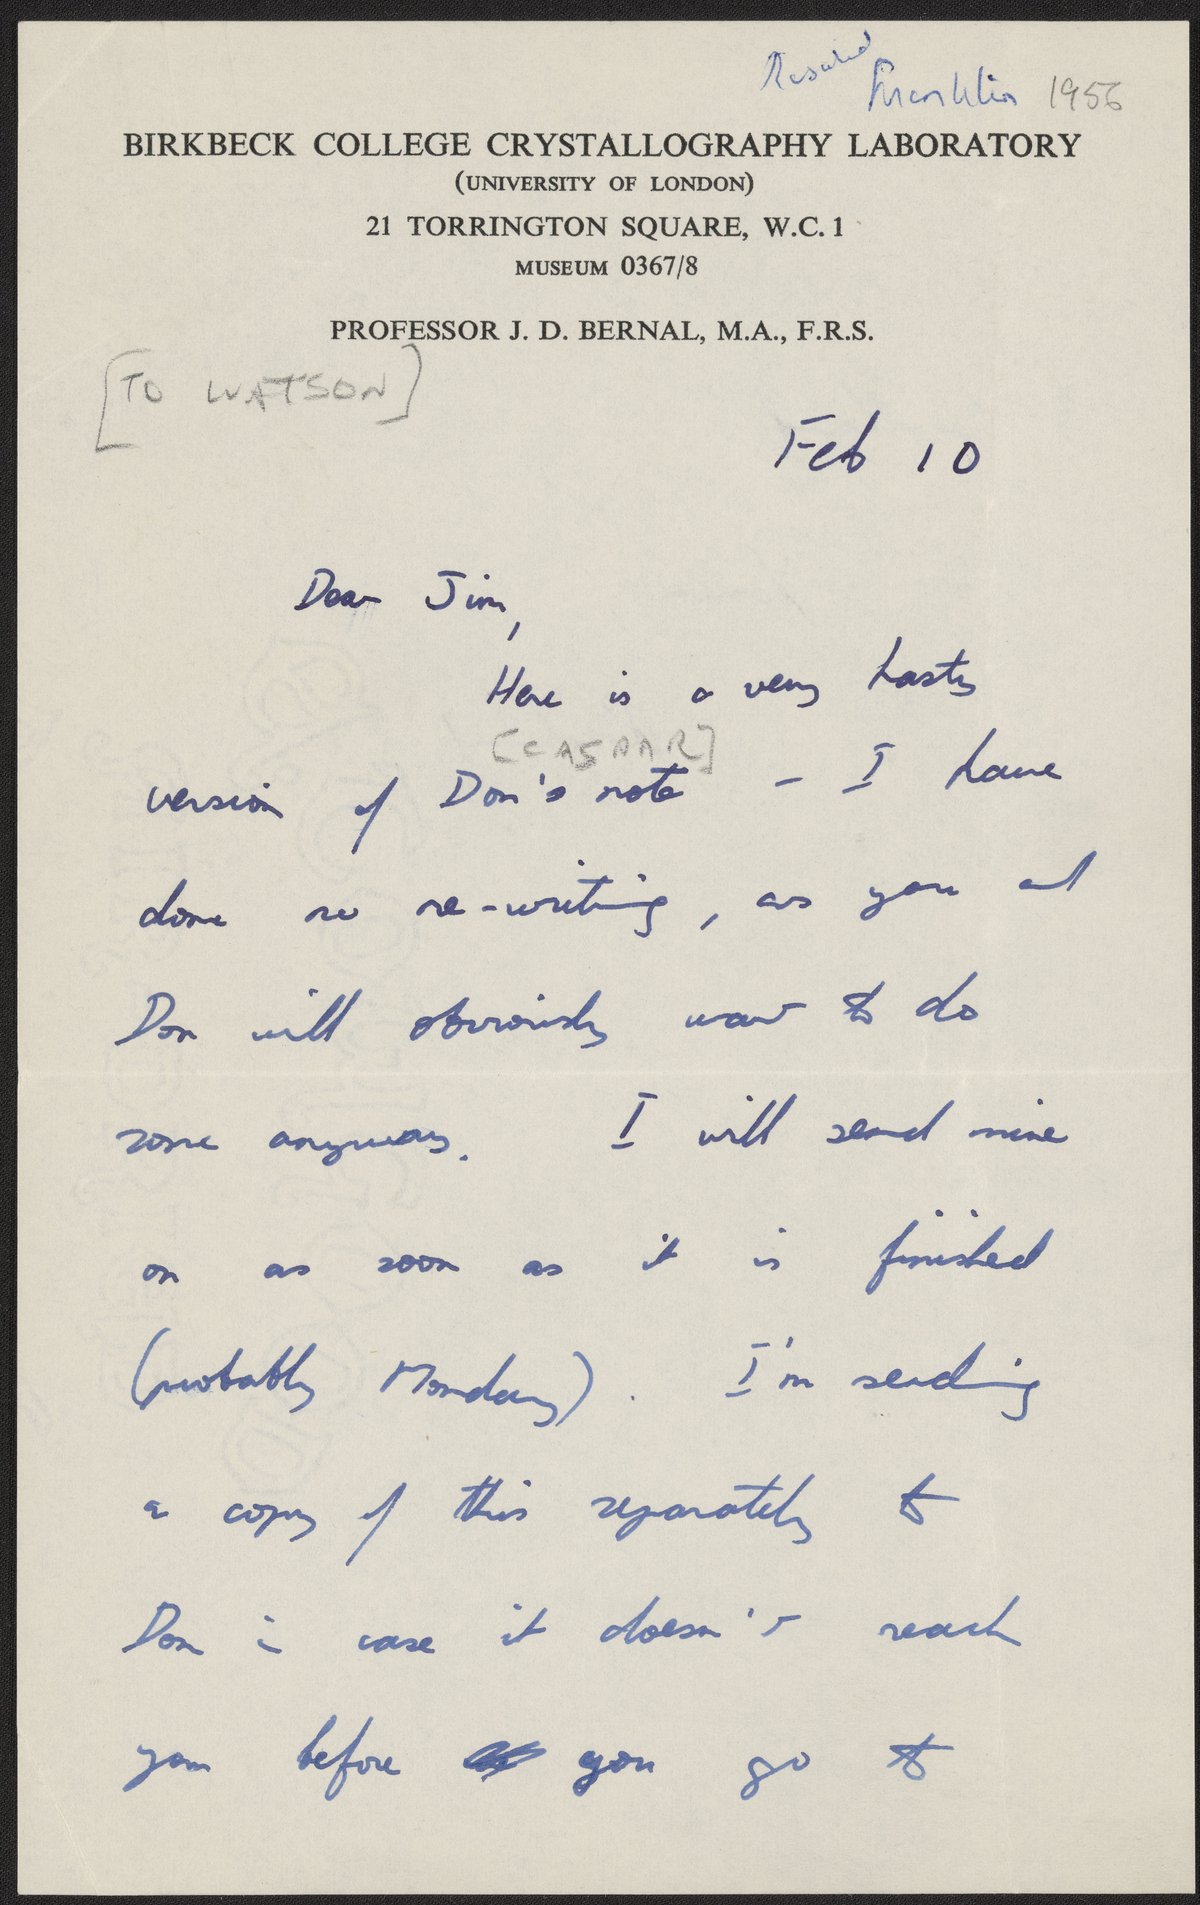 Rosalind Franklin 1956
BIRKBECK COLLEGE CRYSTALLOGRAPHY LABORATORY
(UNIVERSITY OF LONDON)
21 TORRINGTON SQUARE, W.C. 1
MUSEUM 0367/8
PROFESSOR J. D. BERNAL, M.A., F.R.S.
[TO WATSON]
Feb 10
Dear Jim,
Here is a very hasty
[CASPAR]
version of Don's note – I have
done no re-writing, as you and
Don will obviously want to do
some anyway. I will send mine
on as soon as it is finished
(probably Monday). I'm sending
a copy of this separately to
Don in case it doesn't reach
you before you go to